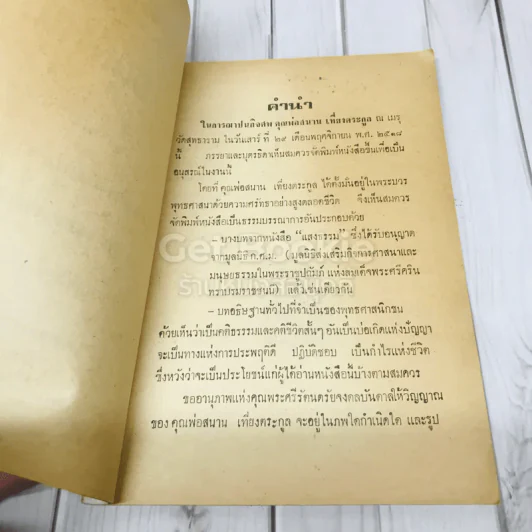 คำนำ
ในการฌาปนกิจศพ คุณพ่อสนาน เที่ยงตระกูล ณ เมรุ
วัดสุทธาราม ในวันเสาร์ ที่ ๒๙ เดือนพฤศจิกายน พ.ศ. ๒๕๑๘
นี้ ภรรยาและบุตรธิดาเห็นสมควรจัดพิมพ์หนังสือขึ้นเพื่อเป็น
อนุสรณ์ในงานนี้
โดยที่ คุณพ่อสนาน เที่ยงตระกูล ได้ตั้งมั่นอยู่ในพระบวร
พุทธศาสนาด้วยความศรัทธาอย่างสูงตลอดชีวิต จึงเห็นสมควร
จัดพิมพ์หนังสือเป็นธรรมบรรณาการอันประกอบด้วย
– บางบทจากหนังสือ "แสงธรรม" ซึ่งได้รับอนุญาต
จากมูลนิธิ ก.ศ.ม. (มูลนิธิส่งเสริมกิจการศาสนาและ
มนุษยธรรมในพระราชูปถัมภ์ แห่งสมเด็จพระศรีนครินทราบรมราชชนนี) แล้วเช่นเดียวกัน
– บทอธิษฐานทั่วไปที่จำเป็นของพุทธศาสนิกชน
ด้วยเห็นว่าเป็นคติธรรมและคติชีวิตสั้นๆ อันเป็นบ่อเกิดแห่งปัญญา
จะเป็นทางแห่งการประพฤติดี ปฏิบัติชอบ เป็นกำไรแห่งชีวิต
ซึ่งหวังว่าจะเป็นประโยชน์แก่ผู้ได้อ่านหนังสือนี้บ้างตามสมควร
ขออานุภาพแห่งคุณพระศรีรัตนตรัยจงดลบันดาลให้วิญญาณ
ของ คุณพ่อสนาน เที่ยงตระกูล จะอยู่ในภพใดกำเนิดใด และรูป